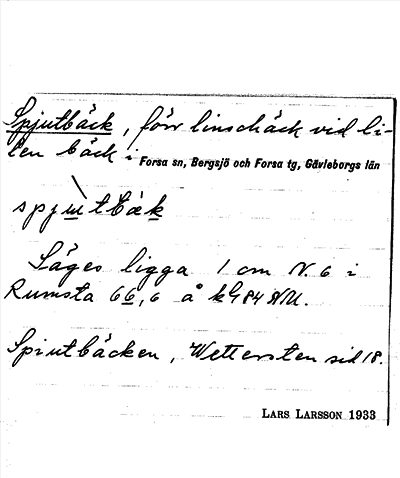 Spjutbäck, förr linschäck vid li-
ten bäck i Forsa sn, Bergsjö och Forsa tg, Gävleborgs län
spjutbäk
Säges ligga 1 cm N. 6 i
Rumsta 66,6 å kG 84 NU.
Spiutbäcken, Wettersten sid 18.
LARS LARSSON 1933